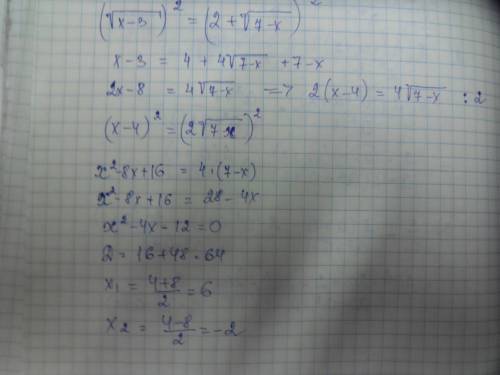 (√x-3)² = (2 + √7-x)²
x-3 = 4 + 4√7-x + 7-x
2x-8 = 4√7-x => 2(x-4) = 4√7-x :2
(x-4)² = (2√7-x)²
x²-8x+16 = 4·(7-x)
x²-8x+16 = 28-4x
x²-4x-12=0
D = 16+48=64
x₁ = 4+8/2 = 6
x₂ = 4-8/2 = -2